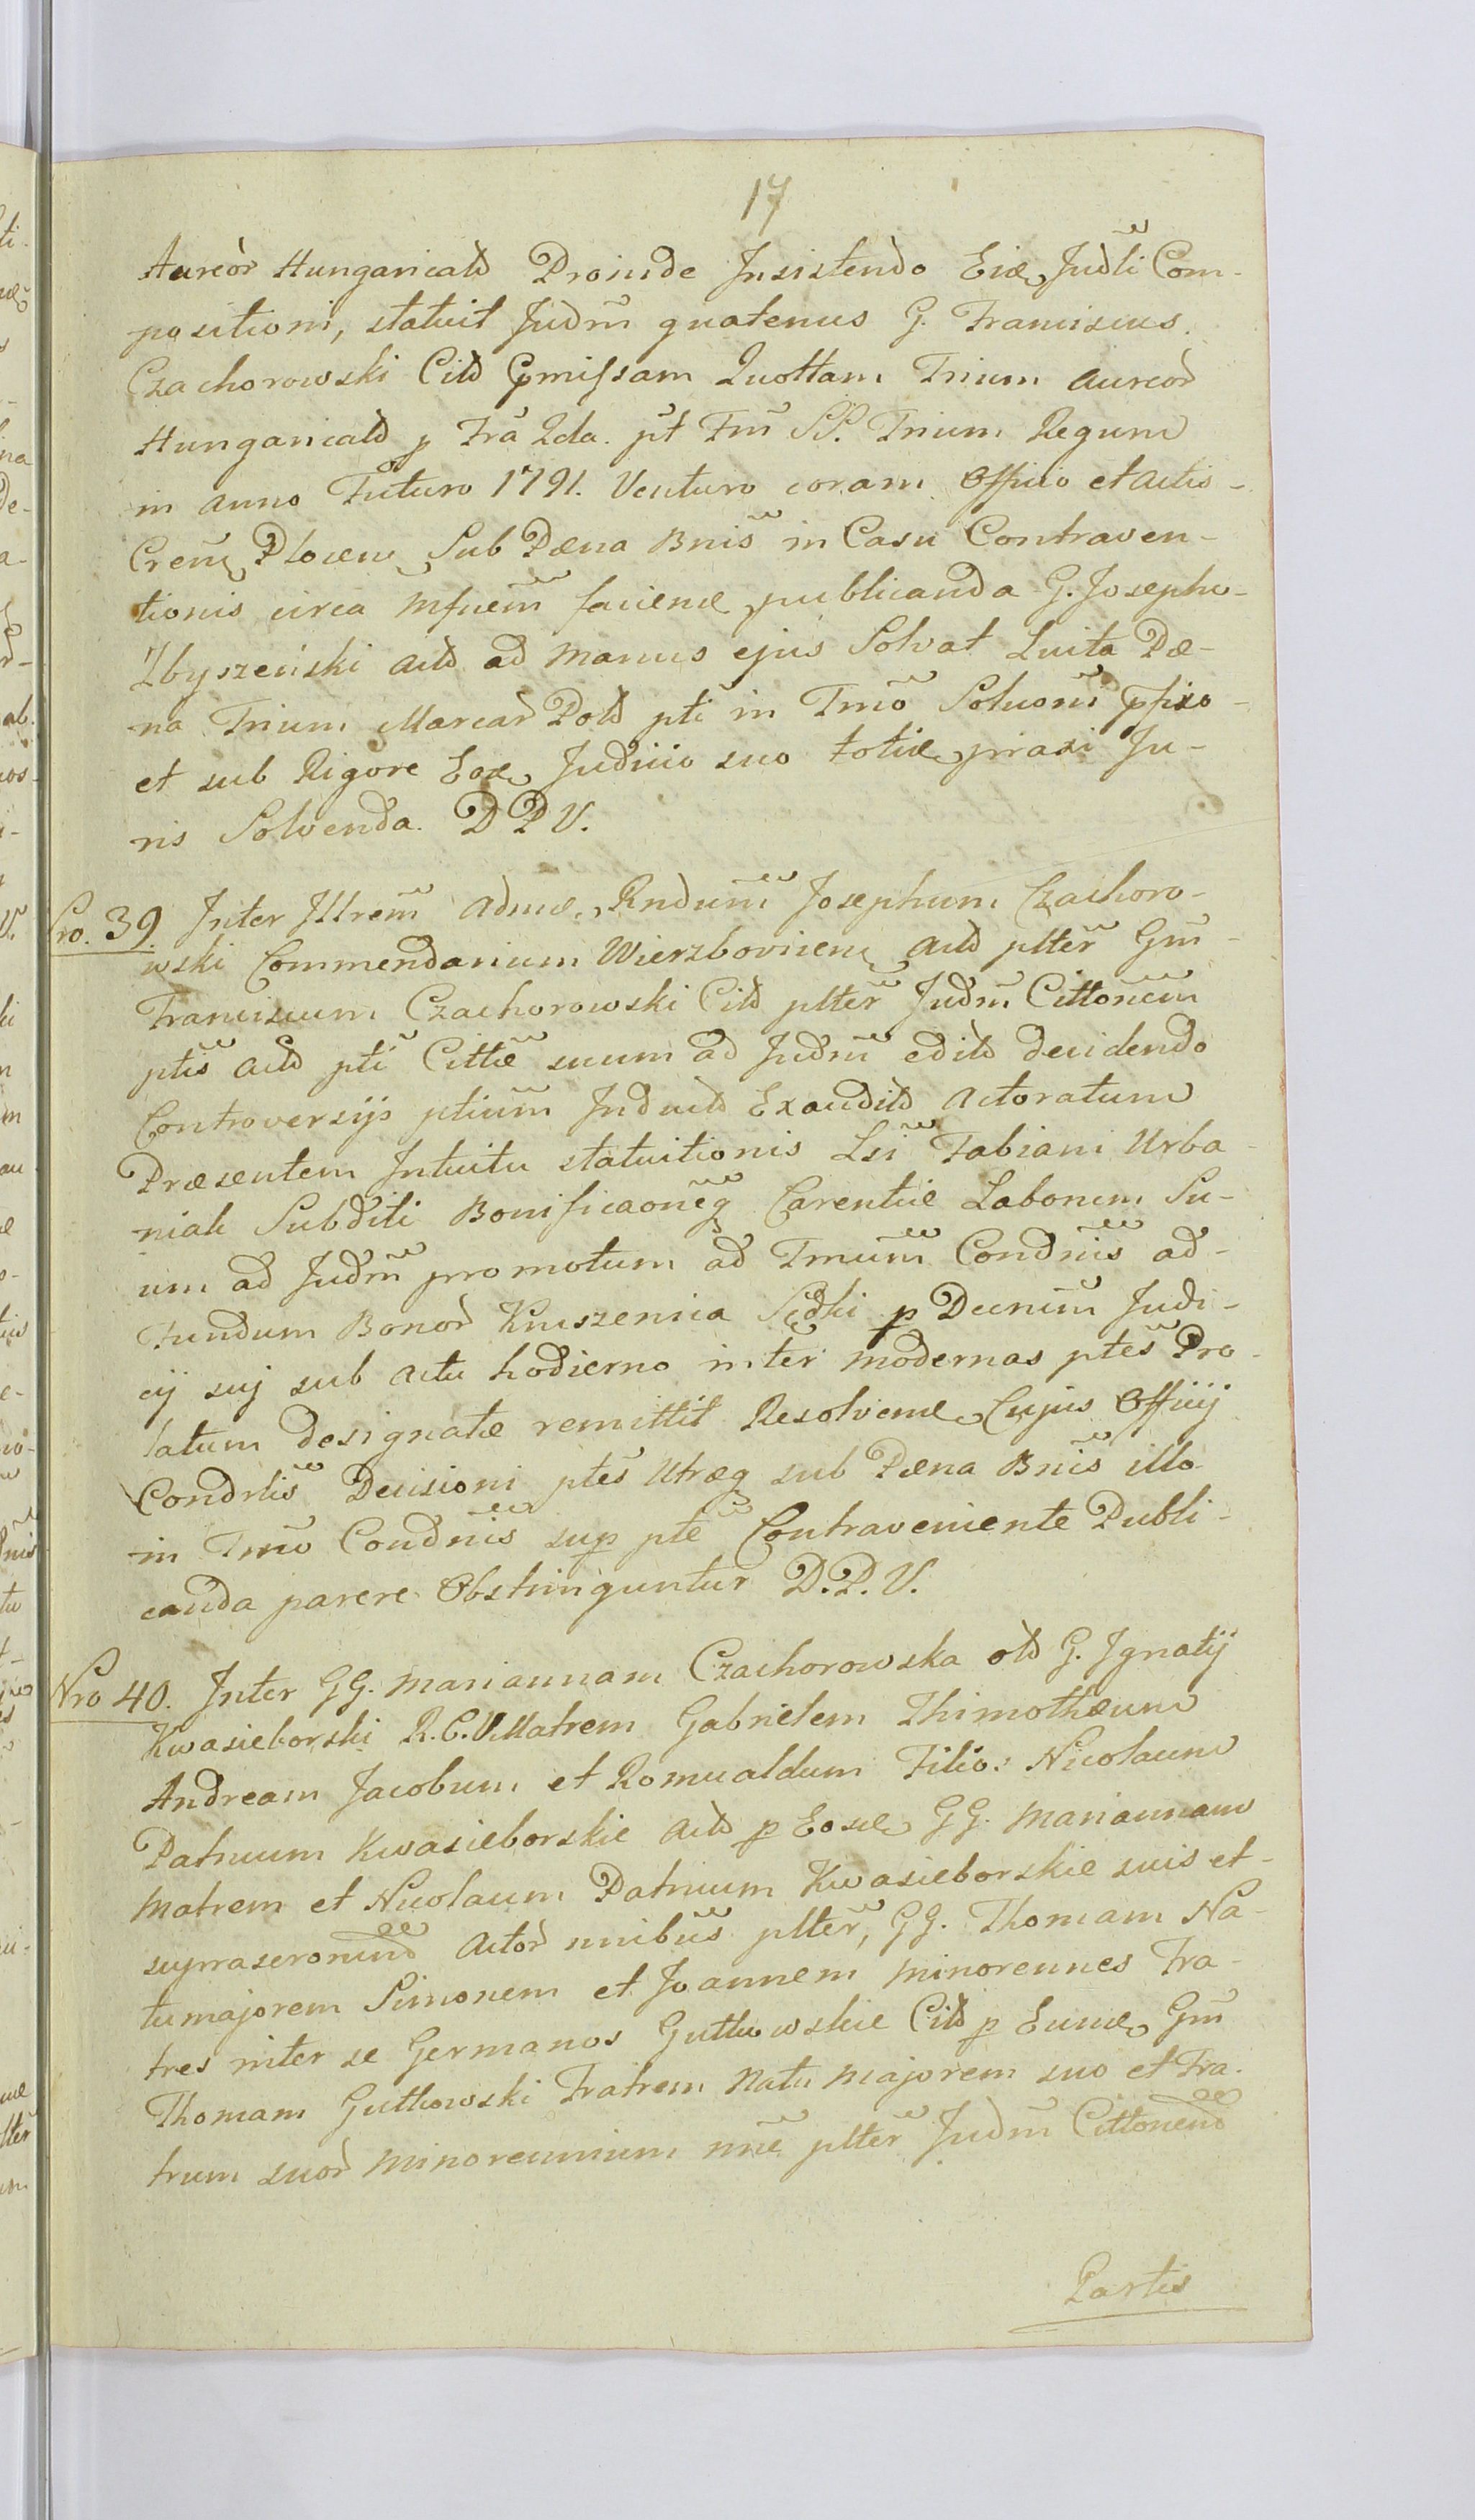 17
Aureor Hungaricald Proinde Insistendo Eidē Judli Com-
positioni, statuit Judm̃ quatenus G. Franciscus
Czachorowski Citd Cpmissam Quottam Trium aureor
Hungaricald p Fra 2da. pt Fm̃ SS. Trium Regum
in anno Futuro 1791. Venturo coram Officio et actis
Cren̄ Plocen Sub Pæna Bnis̃ in Casu Contraven-
tionis circa
faciene publicanda G. Josepho
Zbyszeński actd ad manus ejus Solvat Luita Pæ-
na Trium Marcar Pold pti in Tm̃o Soluoni pfixo
et sub Rigore Eoe Judicio suo totie praxi Ju-
ris Solvenda. D P V.
Nro. 39. Inter Illrem̃ admẽ Rndum̃ Josephum Czachoro-
wski Commendarium Wierzbovicen actd plter̃ Gm̃
Franciscum Czachorowski Citd plter̃ Judm̃ Cittonem̃
ptis̃ actd pti Cittæ̃ suum ad Judm̃ editd decidendo
Controversijs ptium̃ Inductd Exauditd Actoratum
Præsentem Intuitu statuitionis Lsi Fabiani Urba-
niak Subditi Bonificaoneq̃ Carentiæ Laborum Su-
um ad Judm̃ promotum ad Tmum̃ Condnis̃ ad
Fundum Bonor Kruszenica Sędki p Decnim̃ Judi-
cij suj sub actu hodierno inter modernas ptes̃ Pro-
latum designatæ remittit Resolvene Cujus Officij
Condrlis̃ Decisioni ptes̃ Utræq sub Pæna Bnis̃ illo
in Tm̃o Condnis̃ sup pte Contraveniente Publi-
canda parere Obstringuntur D. P. V.
Nro 40. Inter GG. Mariannam Czachorowska old G. Ignatij
Kwasieborski R. C. V. Matrem Gabrielem Thimothæum
Andream Jacobum et Romualdum Filio: Nicolaum
Patruum Kwasieborskie actd p Eosde GG. Mariannam
Matrem et Nicolaum Patruum Kwasieborskie suis et
Actor nnibus̃ plter̃, GG. Thomam Na-
tumajorem Simonem et Joannem minorennes Fra-
tres inter se Germanos Gutkowskie Citd p Eume Gm̃
Thomam Gutkowski Fratrem Natu majorem suo et Fra-
trum suor Minorennium nñe plter̃ Judm̃ Cittonend
Partis